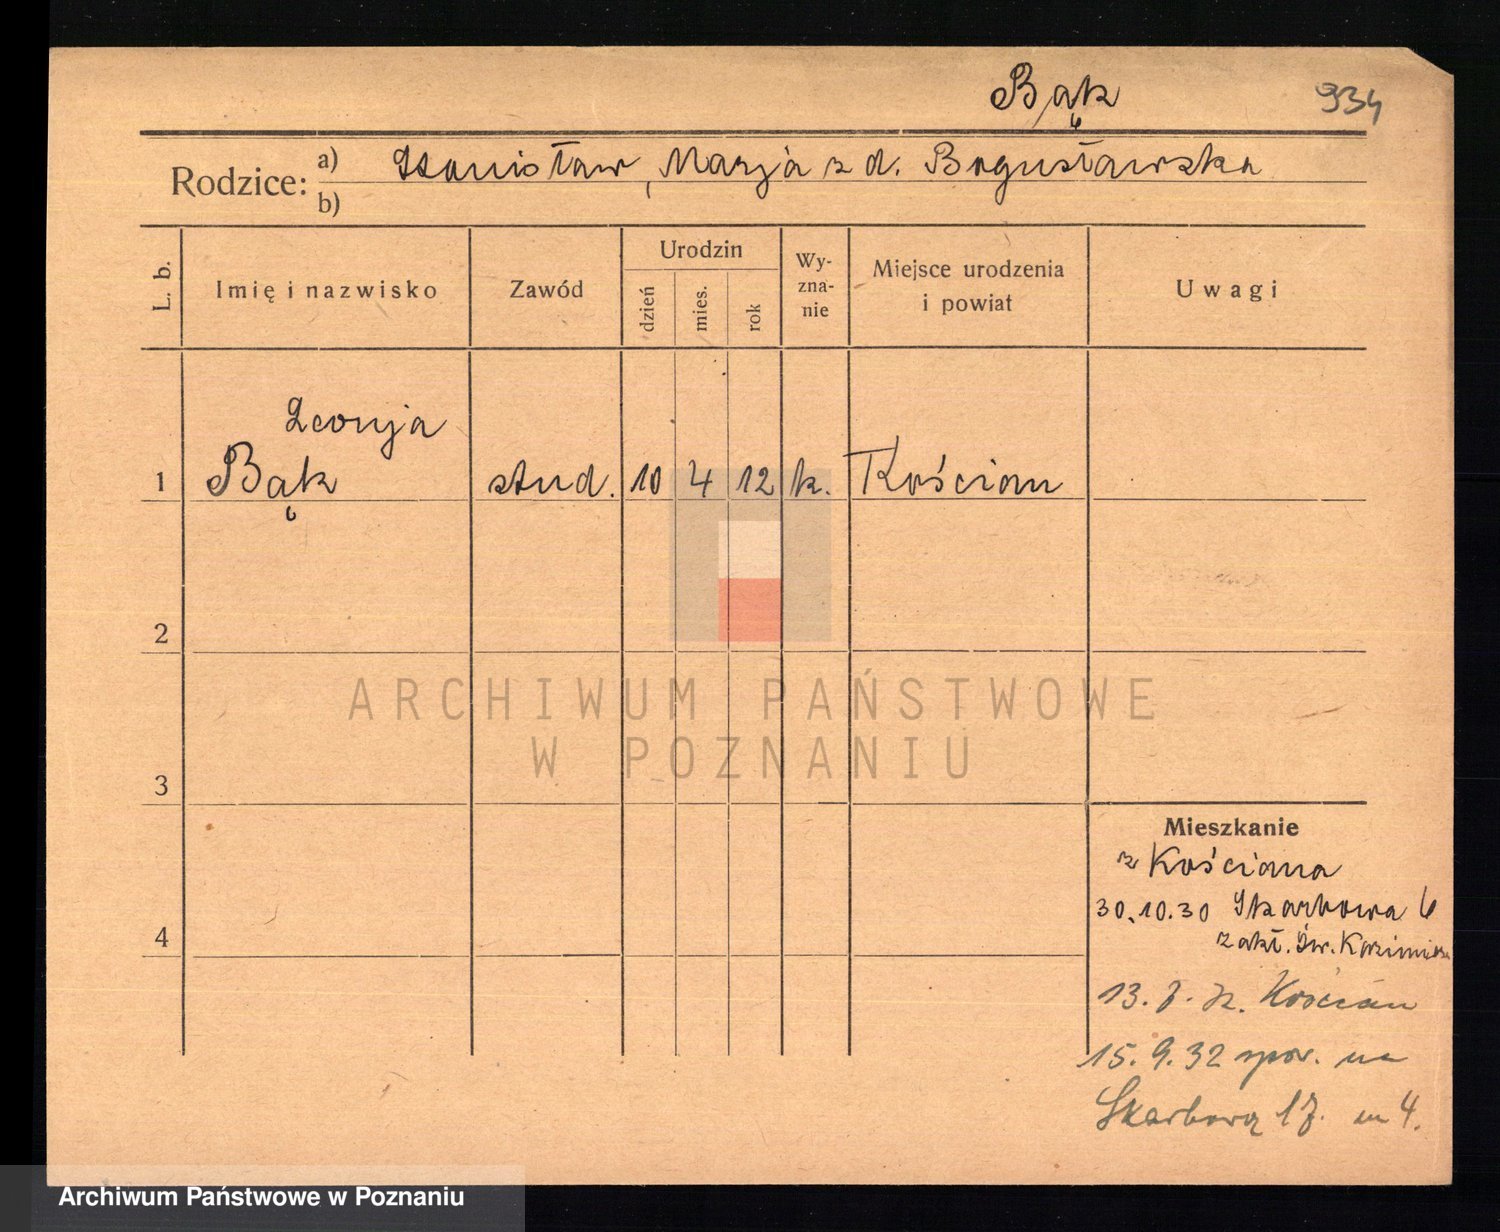 Bąk 934
Rodzice: a) Stanisław, Marja z d. Bogusławska
b)
L. b. Imię i nazwisko Zawód Urodzin dzień mies. rok Wy-zna-nie Miejsce urodzenia i powiat Uwagi
Leonja
1 Bąk stud. 10 4 12 k. Kościan
2
3
4
Mieszkanie
z Kościana
30.10.30 Skarbowa 6
zakł. Św. Kazimierza
13.7. Kościan
15.9.32 spow. na
Skarbową 17. m 4.
ARCHIWUM PAŃSTWOWE
W POZNANIU
Archiwum Państwowe w Poznaniu